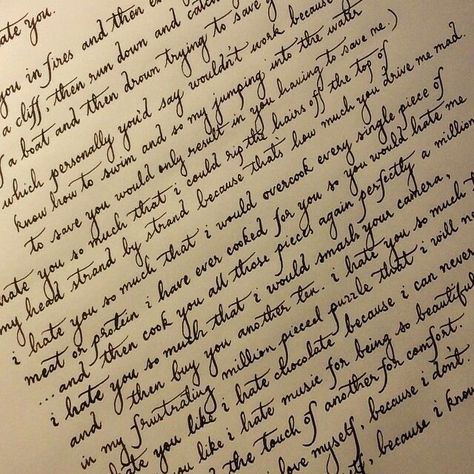 ate you.
you in fires and then e
a cliff, then run down and catch
f a boat and then drown trying to save y
which personally you'd say wouldn't work because
know how to swim and so my jumping into the water
to save you would only result in you having to save me.)
hate you so much that i could rip the hairs off the top of
my head strand by strand because that's how much you drive me mad.
i hate you so much that i would overcook every single piece of
meat or protein i have ever cooked for you so you would hate me
...and then cook you all those pieces again perfectly a million
i hate you so much that i would smash your camera,
and then buy you another ten. i hate you so much t
in my frustrating million pieced puzzle that i will n
hate you like i hate chocolate because i can never
you like i hate music for being so beautiful
d the touch of another for comfort.
love myself, because i don't
lf, because i know